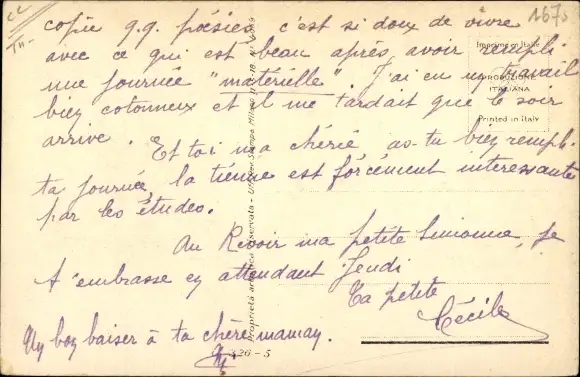 1675
copie q.q. poésies, c'est si doux de vivre
avec ce qui est beau après avoir rempli
une journée "matérielle". J'ai eu un travail
bien cotonneux et il me tardait que le soir
arrive.
Et toi ma chérie as-tu bien rempli
ta journée, la tienne est forcément intéressante
par les études.
Au Revoir ma petite Simonne, je
t'embrasse en attendant Jeudi
Ta petite
Cécile
Un bon baiser à ta chère maman.
Imprimé en Italie
PRODUZIONE
ITALIANA
Printed in Italy
Proprietà artistica riservata - Uff. Rev. Stampa Milano
426 - 5